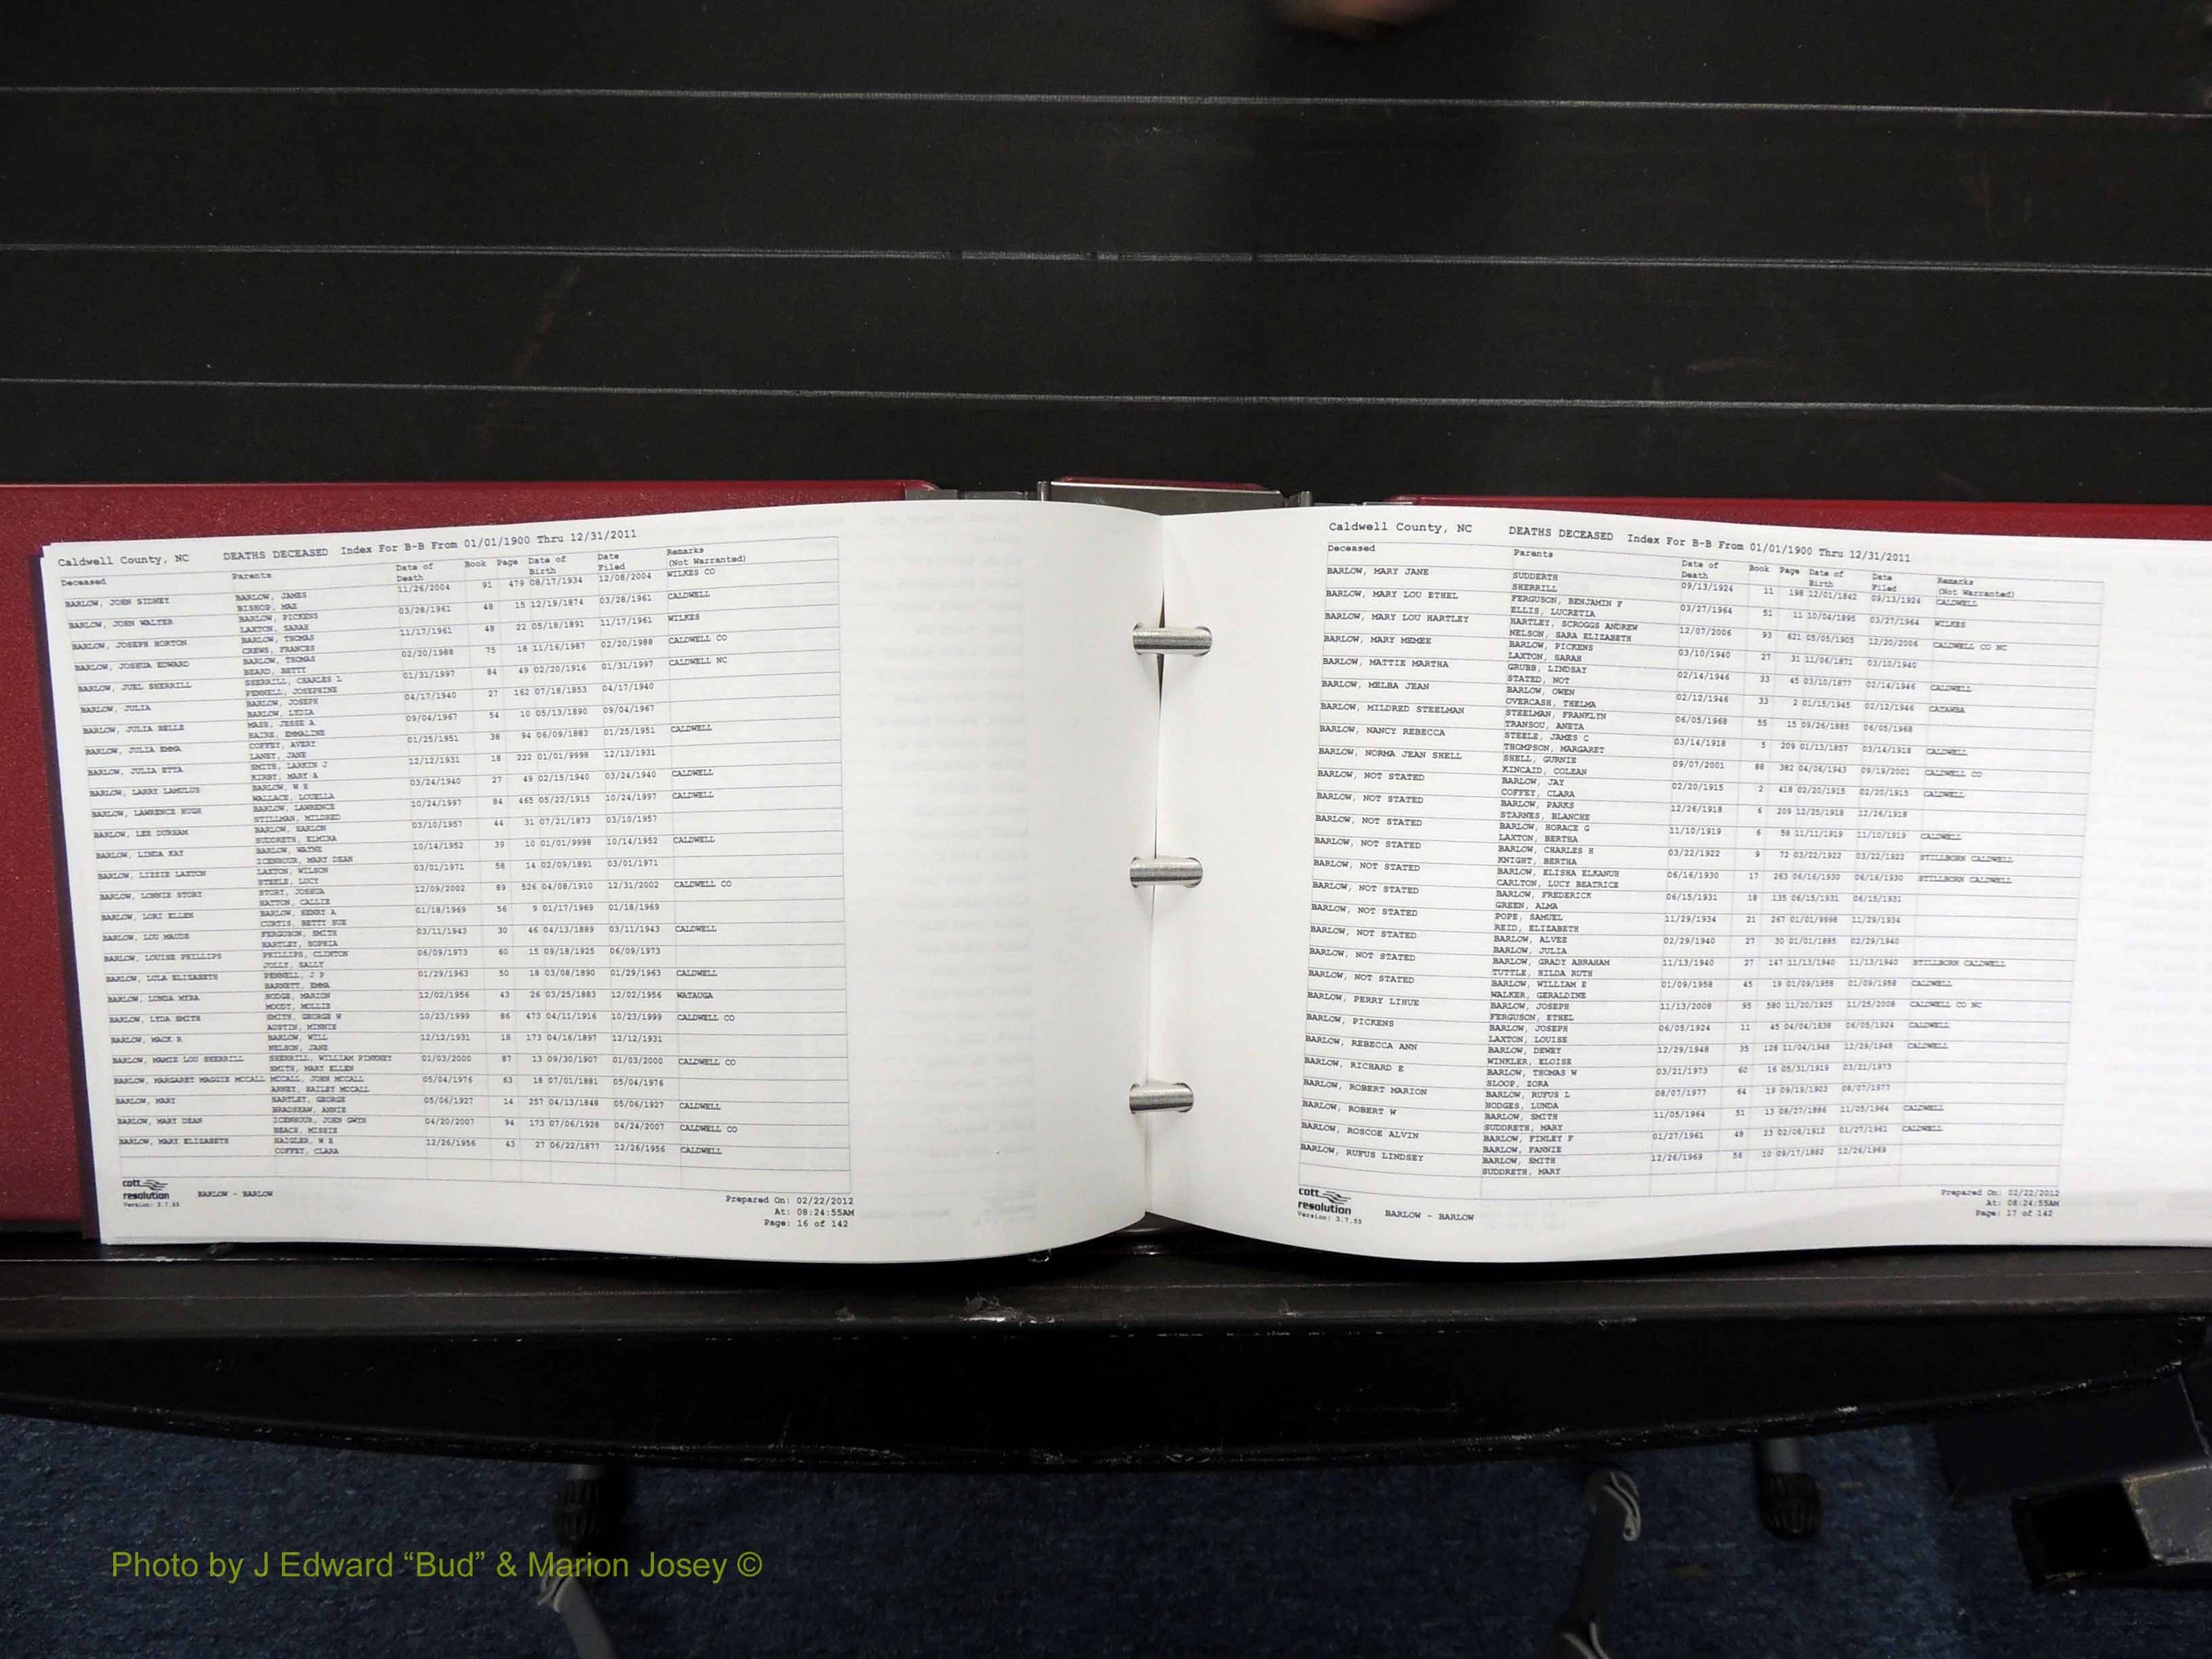 Caldwell County, NC DEATHS DECEASED Index For B-B From 01/01/1900 Thru 12/31/2011
Deceased Parents Date of Death Book Page Date of Birth Date Filed Remarks (Not Warranted)
BARLOW, JOHN SIDNEY BARLOW, JAMES 11/26/2004 91 479 08/17/1934 12/08/2004 WILKES CO
BISHOP, MAE
BARLOW, JOHN WALTER BARLOW, PICKENS 03/28/1961 48 15 12/19/1874 03/28/1961 CALDWELL
LAXTON, SARAH
BARLOW, JOSEPH HORTON BARLOW, THOMAS 11/17/1961 48 22 05/18/1891 11/17/1961 WILKES
CREWS, FRANCES
BARLOW, JOSHUA EDWARD BARLOW, THOMAS 02/20/1988 75 18 11/16/1987 02/20/1988 CALDWELL CO
BEARD, BETTY
BARLOW, JUEL SHERRILL SHERRILL, CHARLES L 01/31/1997 84 49 02/20/1916 01/31/1997 CALDWELL NC
PENNELL, JOSEPHINE
BARLOW, JULIA BARLOW, JOSEPH 04/17/1940 27 162 07/18/1853 04/17/1940
BARLOW, LYDIA
BARLOW, JULIA BELLE MASH, JESSE A 09/04/1967 54 10 05/13/1890 09/04/1967
HAIRE, EMMALINE
BARLOW, JULIA EMMA COFFEY, AVERY 01/25/1951 38 94 06/09/1883 01/25/1951 CALDWELL
LANEY, JANE
BARLOW, JULIA ETTA SMITH, LARKIN J 12/12/1931 18 222 01/01/9998 12/12/1931
KIRBY, MARY A
BARLOW, LARRY LAMULUS BARLOW, W H 03/24/1940 27 49 02/15/1940 03/24/1940 CALDWELL
WALLACE, LOUELLA
BARLOW, LAWRENCE HUGH BARLOW, LAWRENCE 10/24/1997 84 465 05/22/1915 10/24/1997 CALDWELL
STILLMAN, MILDRED
BARLOW, LEE DURHAM BARLOW, HARLON 03/10/1957 44 31 07/21/1873 03/10/1957
SUDDRETH, ELMIRA
BARLOW, LINDA KAY BARLOW, WAYNE 10/14/1952 39 10 01/01/9998 10/14/1952 CALDWELL
ICENHOUR, MARY DEAN
BARLOW, LIZZIE LAXTON LAXTON, WILSON 03/01/1971 58 14 02/09/1891 03/01/1971
STEELE, LUCY
BARLOW, LONNIE STORY STORY, JOSHUA 12/09/2002 89 526 04/08/1910 12/31/2002 CALDWELL CO
HATTON, CALLIE
BARLOW, LORI ELLEN BARLOW, HENRY A 01/18/1969 56 9 01/17/1969 01/18/1969
CURTIS, BETTY SUE
BARLOW, LOU MAUDE FERGUSON, SMITH 03/11/1943 30 46 04/13/1889 03/11/1943 CALDWELL
HARTLEY, SOPHIA
BARLOW, LOUISE PHILLIPS PHILLIPS, CLINTON 06/09/1973 60 15 09/18/1925 06/09/1973
JOLLY, SALLY
BARLOW, LULA ELIZABETH PENNELL, J P 01/29/1963 50 18 03/08/1890 01/29/1963 CALDWELL
BARNETT, EMMA
BARLOW, LUNDA MYRA HODGE, MARION 12/02/1956 43 26 03/25/1883 12/02/1956 WATAUGA
MOODY, MOLLIE
BARLOW, LYDA SMITH SMITH, GEORGE W 10/23/1999 86 473 04/11/1916 10/23/1999 CALDWELL CO
AUSTIN, MINNIE
BARLOW, MACK R BARLOW, WILL 12/12/1931 18 173 04/16/1897 12/12/1931
NELSON, JANE
BARLOW, MAMIE LOU SHERRILL SHERRILL, WILLIAM PINKNEY 01/03/2000 87 13 09/30/1907 01/03/2000 CALDWELL CO
SMITH, MARY ELLEN
BARLOW, MARGARET MAGGIE MCCALL MCCALL, JOHN MCCALL 05/04/1976 63 18 07/01/1881 05/04/1976
ARNEY, HAILEY MCCALL
BARLOW, MARY HARTLEY, GEORGE 05/06/1927 14 257 04/13/1848 05/06/1927 CALDWELL
BRADSHAW, ANNIE
BARLOW, MARY DEAN ICENHOUR, JOHN GWYN 04/20/2007 94 173 07/06/1928 04/24/2007 CALDWELL CO
BEACH, MISSIE
BARLOW, MARY ELIZABETH HAIGLER, W H 12/26/1956 43 27 06/22/1877 12/26/1956 CALDWELL
COFFEY, CLARA
cott
resolution BARLOW - BARLOW
Version: 3.7.55
Prepared On: 02/22/2012
At: 08:24:55AM
Page: 16 of 142
Caldwell County, NC DEATHS DECEASED Index For B-B From 01/01/1900 Thru 12/31/2011
Deceased Parents Date of Death Book Page Date of Birth Date Filed Remarks (Not Warranted)
BARLOW, MARY JANE SUDDERTH 09/13/1924 11 198 12/01/1842 09/13/1924 CALDWELL
SHERRILL
BARLOW, MARY LOU ETHEL FERGUSON, BENJAMIN F 03/27/1964 51 11 10/04/1895 03/27/1964 WILKES
ELLIS, LUCRETIA
BARLOW, MARY LOU HARTLEY HARTLEY, SCROGGS ANDREW 12/07/2006 93 621 05/05/1905 12/20/2006 CALDWELL CO NC
NELSON, SARA ELIZABETH
BARLOW, MARY MEMEE BARLOW, PICKENS 03/10/1940 27 31 11/06/1871 03/10/1940
LAXTON, SARAH
BARLOW, MATTIE MARTHA GRUBB, LINDSAY 02/14/1946 33 45 03/10/1877 02/14/1946 CALDWELL
STATED, NOT
BARLOW, MELBA JEAN BARLOW, OWEN 02/12/1946 33 2 01/15/1945 02/12/1946 CATAWBA
OVERCASH, THELMA
BARLOW, MILDRED STEELMAN STEELMAN, FRANKLYN 06/05/1968 55 15 09/26/1885 06/05/1968
TRANSOU, ANETA
BARLOW, NANCY REBECCA STEELE, JAMES C 03/14/1918 5 209 01/13/1857 03/14/1918 CALDWELL
THOMPSON, MARGARET
BARLOW, NORMA JEAN SHELL SHELL, GURNIE 09/07/2001 88 382 04/06/1943 09/19/2001 CALDWELL CO
KINCAID, COLEAN
BARLOW, NOT STATED BARLOW, JAY 02/20/1915 2 418 02/20/1915 02/20/1915 CALDWELL
COFFEY, CLARA
BARLOW, NOT STATED BARLOW, PARKS 12/26/1918 6 209 12/25/1918 12/26/1918
STARNES, BLANCHE
BARLOW, NOT STATED BARLOW, HORACE G 11/10/1919 6 58 11/11/1919 11/10/1919 CALDWELL
LAXTON, BERTHA
BARLOW, NOT STATED BARLOW, CHARLES H 03/22/1922 9 72 03/22/1922 03/22/1922 STILLBORN CALDWELL
KNIGHT, BERTHA
BARLOW, NOT STATED BARLOW, ELISHA ELKANUH 06/16/1930 17 263 06/16/1930 06/16/1930 STILLBORN CALDWELL
CARLTON, LUCY BEATRICE
BARLOW, NOT STATED BARLOW, FREDERICK 06/15/1931 18 135 06/15/1931 06/15/1931
GREEN, ALMA
BARLOW, NOT STATED POPE, SAMUEL 11/29/1934 21 267 01/01/9998 11/29/1934
REID, ELIZABETH
BARLOW, NOT STATED BARLOW, ALVEE 02/29/1940 27 30 01/01/1885 02/29/1940
BARLOW, JULIA
BARLOW, NOT STATED BARLOW, GRADY ABRAHAM 11/13/1940 27 147 11/13/1940 11/13/1940 STILLBORN CALDWELL
TUTTLE, HILDA RUTH
BARLOW, NOT STATED BARLOW, WILLIAM E 01/09/1958 45 18 01/09/1958 01/09/1958 CALDWELL
WALKER, GERALDINE
BARLOW, PERRY LIHUE BARLOW, JOSEPH 11/13/2008 95 580 11/20/1925 11/25/2008 CALDWELL CO NC
FERGUSON, ETHEL
BARLOW, PICKENS BARLOW, JOSEPH 06/05/1924 11 45 04/04/1838 06/05/1924 CALDWELL
LAXTON, LOUISE
BARLOW, REBECCA ANN BARLOW, DEWEY 12/29/1948 35 128 11/04/1948 12/29/1948 CALDWELL
WINKLER, ELOISE
BARLOW, RICHARD E BARLOW, THOMAS W 03/21/1973 60 16 05/31/1919 03/21/1973
SLOOP, ZORA
BARLOW, ROBERT MARION BARLOW, RUFUS L 08/07/1977 64 19 09/19/1903 08/07/1977
HODGES, LUNDA
BARLOW, ROBERT W BARLOW, SMITH 11/05/1964 51 13 08/27/1886 11/05/1964 CALDWELL
SUDDRETH, MARY
BARLOW, ROSCOE ALVIN BARLOW, FINLEY F 01/27/1961 48 23 02/08/1912 01/27/1961 CALDWELL
BARLOW, FANNIE
BARLOW, RUFUS LINDSEY BARLOW, SMITH 12/26/1969 56 10 09/17/1882 12/26/1969
SUDDRETH, MARY
cott
resolution BARLOW - BARLOW
Version: 3.7.55
Prepared On: 02/22/2012
At: 08:24:55AM
Page: 17 of 142
Photo by J Edward “Bud” & Marion Josey ©